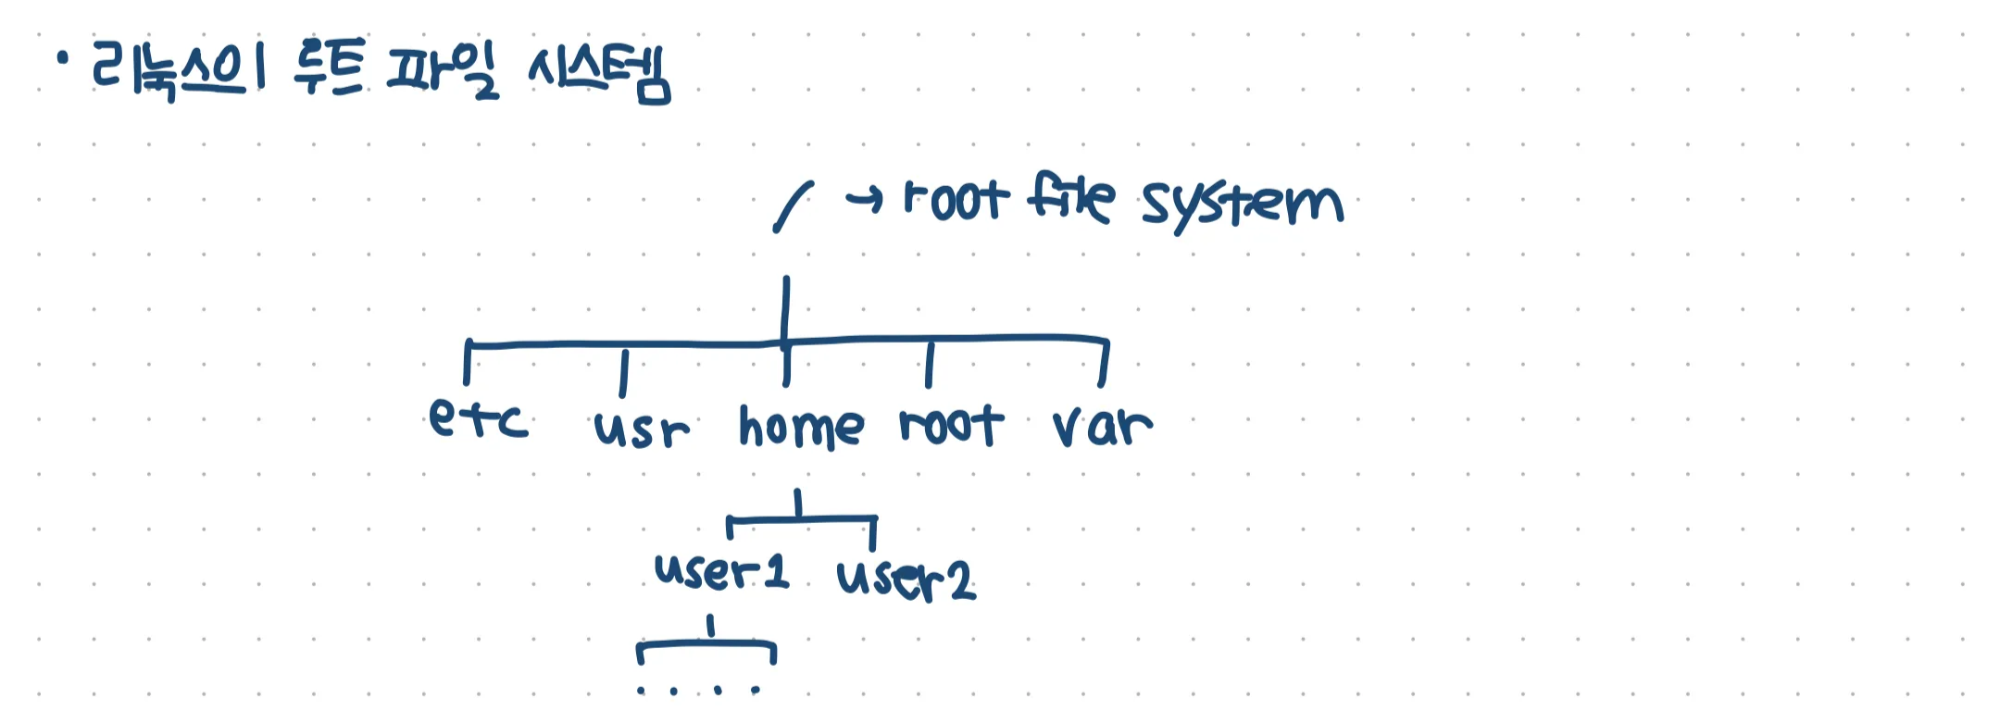 · 리눅스이 루트 파일 시스템
/ → root file system
etc usr home root var
user1 user2
. . . .